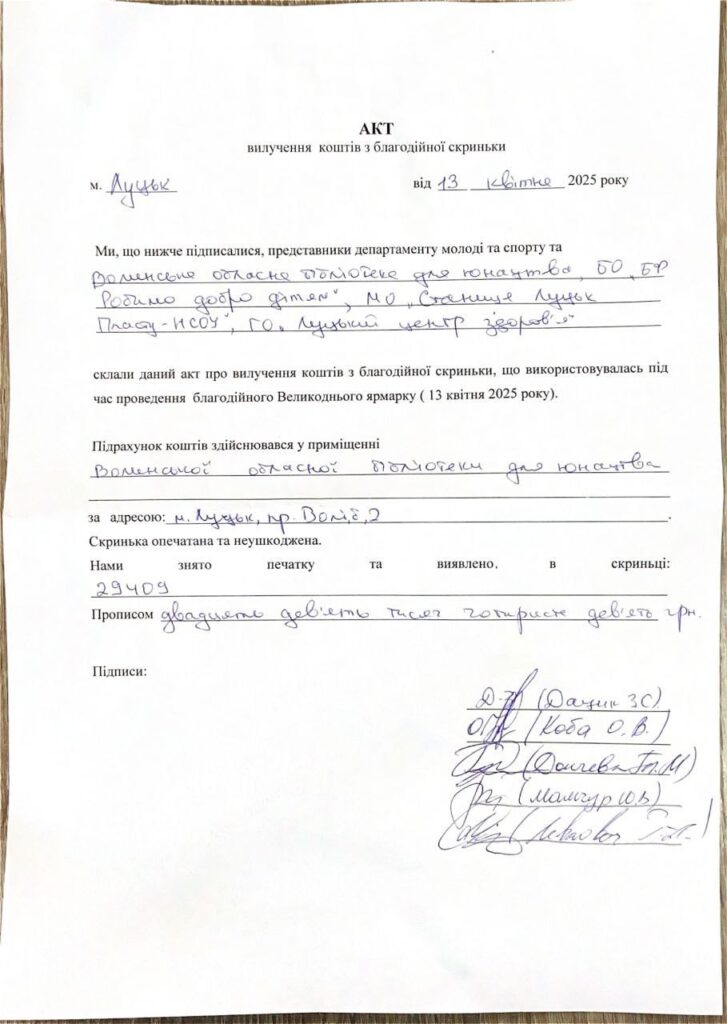 АКТ
вилучення коштів з благодійної скриньки
м. Луцьк від 13 квітня 2025 року
Ми, що нижче підписалися, представники департаменту молоді та спорту та
Волинська обласна бібліотека для юнацтва, БО „БФ
Робимо добро дітям", МО „Станиця Луцьк
Пласту-НСОУ", ГО „Луцький центр здоров'я"
склали даний акт про вилучення коштів з благодійної скриньки, що використовувалась під
час проведення благодійного Великоднього ярмарку ( 13 квітня 2025 року).
Підрахунок коштів здійснювався у приміщенні
Волинської обласної бібліотеки для юнацтва
за адресою: м. Луцьк, пр. Волі, 2
Скринька опечатана та неушкоджена.
Нами знято печатку та виявлено, в скриньці:
29409
Прописом двадцять дев'ять тисяч чотириста дев'ять грн.
Підписи:
(Дацик З С)
(Коба О. В.)
(Мамчур Ю.В)